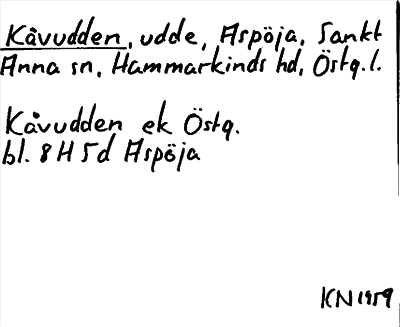 Kåvudden, udde, Aspöja, Sankt
Anna sn, Hammarkinds hd, Östg.l.
Kåvudden ek Östg.
bl. 8H 5d Aspöja
KN 1959